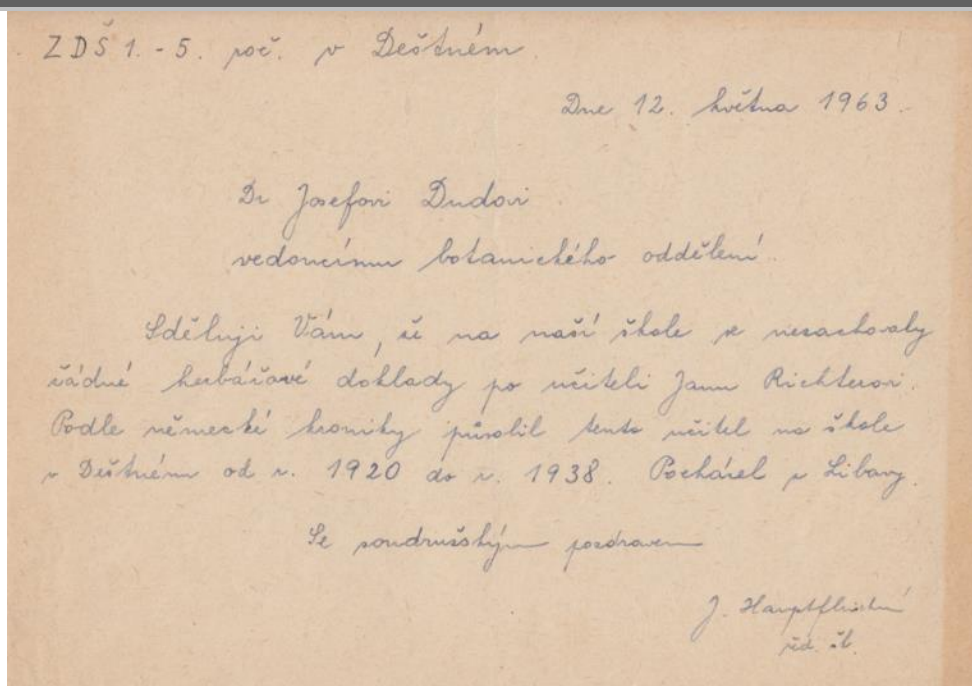 ZDŠ 1. - 5. roč. v Deštném.
Dne 12. května 1963.
Dr Josefovi Dudovi
vedoucímu botanického oddělení.
Sděluji Vám, že na naší škole se nezachovaly
žádné herbářové doklady po učiteli Janu Richterovi.
Podle německé kroniky působil tento učitel na škole
v Deštném od r. 1920 do r. 1938. Pocházel z Libavy.
Se soudružským pozdravem
J.
řed. šk.